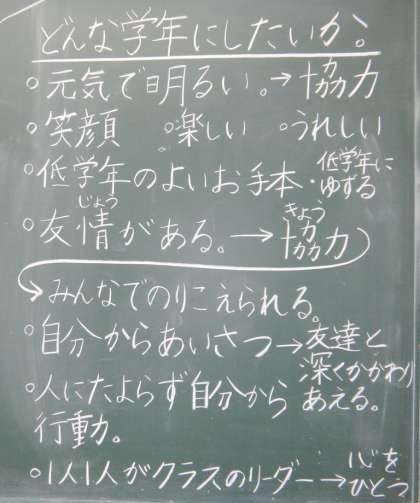 どんな学年にしたいか。
○元気で明るい。→協力
○笑顔 ○楽しい ○うれしい
○低学年のよいお手本・低学年にゆずる
じょう きょう
○友情がある。→協力
→みんなでのりこえられる。
○自分からあいさつ→友達と深くかかわりあえる。
○人にたよらず自分から
行動。
○1人1人がクラスのリーダー→心をひとつ